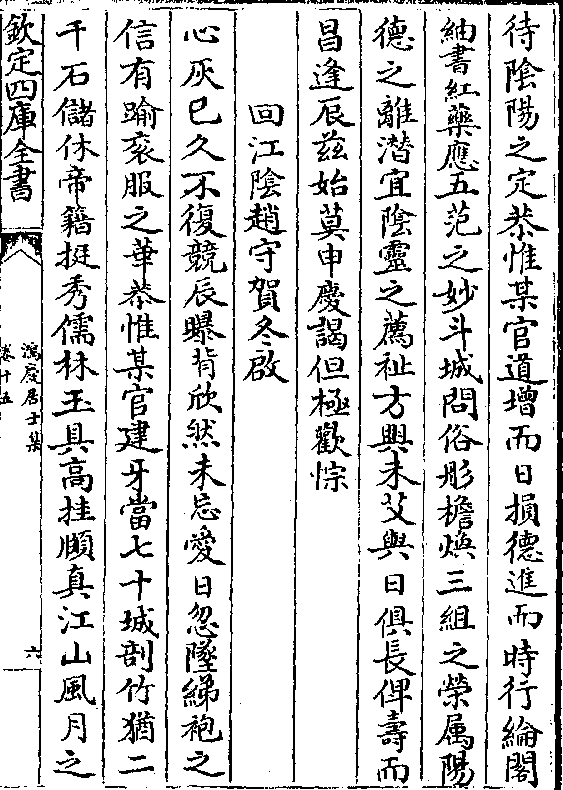 待陰陽之定恭惟某官道增而日損德進而時行綸閣
紬書紅藥應五范之妙斗城問俗彤襜煥三組之榮属陽
德之離潛宜陰靈之薦祉方興未艾與日俱長俾壽而
昌逢辰兹始莫申慶謁但極歡悰
回江陰趙守賀冬啟
心灰已久不復競辰曝背欣然未忘愛日忽墜綈袍之
信有踰衮服之華恭惟某官建牙當七十城剖竹猶二
千石儲休帝籍挺秀儒林玉具高挂頤真江山風月之
欽定四庫全書
鴻慶居士集
卷十五
六